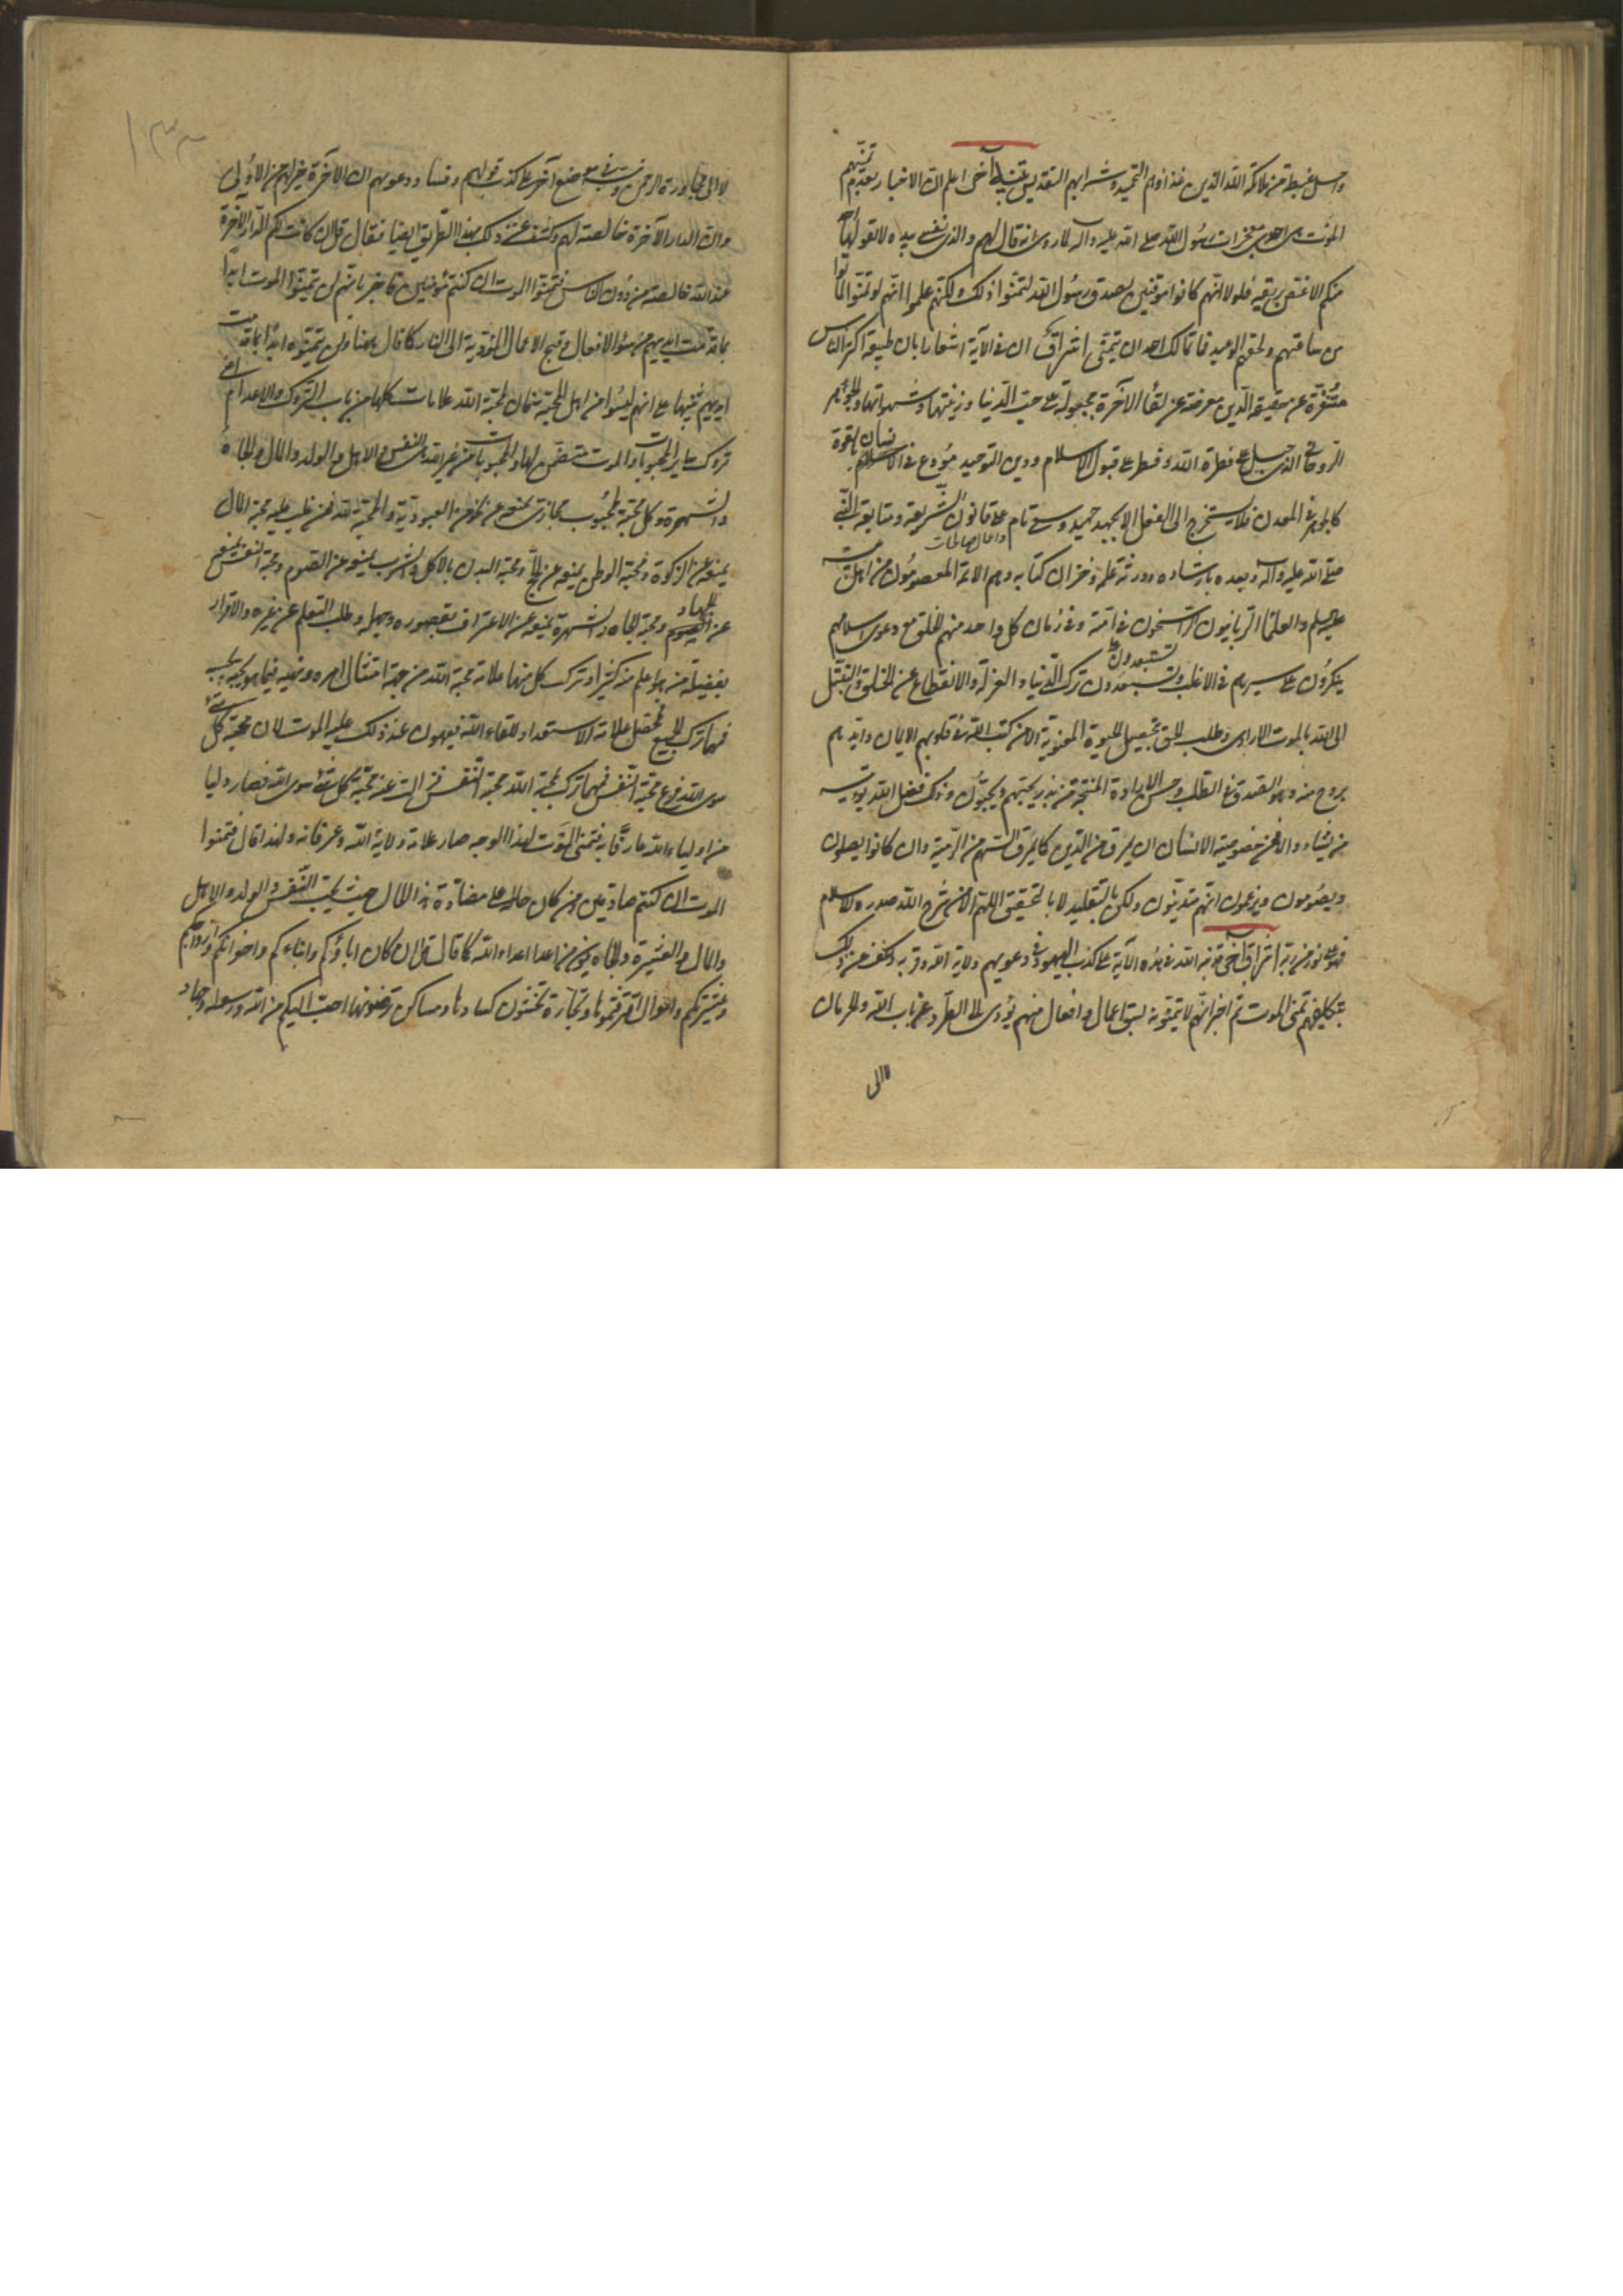 واصل غبطة من ملائكة الله الذين غذاؤهم التحميد وشرابهم التقديس تنبيه آخر اعلم ان الاخبار بعدم تمنيهم
الموت من احدى معجزات رسول الله صلى الله عليه وآله لما روى انه قال لهم والذي نفسي بيده لا يقولها احد
منكم الا غص بريقه فلولا انهم كانوا موقنين بصدق رسول الله لتمنوا ذلك ولكنهم علموا انهم لو تمنوا لماتوا
من ساعتهم ولحقهم الوعيد فما تمالك احد ان يتمنى اشراق ان في الآية اشعارا بان طبيعة اكثر الناس
متنفرة عن حقيقة الدين معرضة عن لقاء الآخرة مجبولة على حب الدنيا وزينتها وشهواتها والجوهر
الروحاني الذي جبل على فطرة الله وفطر على قبول الاسلام ودين التوحيد مودع في الانسان بالقوة
كالجوهر في المعدن فلا يستخرج الى الفعل الا بجهد جهيد وسعي تام واعمال صالحات على قانون الشريعة ومتابعة النبي
صلى الله عليه وآله وبعده بارشاد ورثة علمه وخزان كتابه وهم الائمة المعصومون من اهل بيته
عليهم السلام والعلماء الربانيون الراسخون في امته وفي زمان كل واحد منهم الخلق مع دعوى اسلامهم
ينكرون على سيرهم في الاغلب ويستبعدون ترك الدنيا والعزلة والانقطاع عن الخلق والتبتل
الى الله بالموت الارادي وطلب الحق بتحصيل الحيوة المعنوية الا من كتب الله في قلوبهم الايمان وايدهم
بروح منه وهو الصدق في الطلب وحسن الارادة المنتجة من بذر يحبهم ويحبونه وذلك فضل الله يؤتيه
من يشاء والا فمن خصوصية الانسان ان يمرق من الدين كما يمرق السهم من الرمية وان كانوا يصلون
ويصومون ويزعمون انهم متدينون ولكن بالتقليد لا بالتحقيق اللهم الا من شرح الله صدره للاسلام
فهو على نور من ربه اشراق آخر نبه الله في هذه الآية على كذب اليهود في دعويهم ولاية الله وقربه وكشف عن ذلك
بتكليفهم تمنى الموت ثم اخبر انهم لا يتمنونه بسبق اعمال وافعال منهم يؤدي الى الطرد وعذاب الله والحرمان
لا الى
لا الى مجاورة الرحمن ونبه في موضع آخر على كذب قولهم وفساد دعويهم ان الآخرة خير لهم من الاولى
وان الدار الآخرة خالصة لهم وكشف عن ذلك بهذا الطريق ايضا فقال قل ان كانت لكم الدار الآخرة
عند الله خالصة من دون الناس فتمنوا الموت ان كنتم مؤمنين فاخبر بانهم لن يتمنوا الموت ابدا
بما قدمت ايديهم من سوء الافعال وقبح الاعمال المؤدية الى النار كما قال ههنا ولن يتمنوه ابدا بما قدمت
ايديهم تنبيها على انهم ليسوا من اهل المحبة فان لمحبة الله علامات كلها من باب التروك والاعدام اعني
تروك ساير المحبوبات والموت متضمن لها والمحبوبات من غير الله هي النفس والاهل والولد والمال والجاه
والشهرة وكل محبة لمحبوب مجازي يمنع عن نحو من العبودية والمحبة لله فمن غلب عليه محبة المال
يمنعه عن الزكوة ومحبة الوطن يمنعه عن الحج ومحبة البدن بالاكل والشرب يمنعه عن الصوم ومحبة النفس يمنعه
عن الجهاد ومحبة الجاه والشهرة يمنعه عن الاعتراف بقصوره وجهله وطلب التعلم عن غيره والاقرار
بفضيلة من هو اعلم منه كثيرا وترك كل منها علامة محبة الله من جهة امتثال امره ونهيه فيما هو يحبه
فمهما ترك الجميع فحصل علامة الاستعداد للقاء الله فيهون عند ذلك عليه الموت لان محبة كل شيء
سوى الله فرع محبة النفس فمهما ترك لمحبة الله محبة النفس زالت عنه محبة كل شيء سوى الله فصار وليا
من اولياء الله عارفا به فتمنى الموت لهذا الوجه صار علامة ولاية الله وعرفانه ولهذا قال فتمنوا
الموت ان كنتم صادقين ومن كان حاله على مضادة هذا الحال حيث يحب النفس والولد والاهل
والمال والعشيرة والجاه يكون من اعداء الله كما قال قل ان كان اباؤكم وابناءكم واخوانكم وازواجكم
وعشيرتكم واموال اقترفتموها وتجارة تخشون كسادها ومساكن ترضونها احب اليكم من الله ورسوله وجهاد